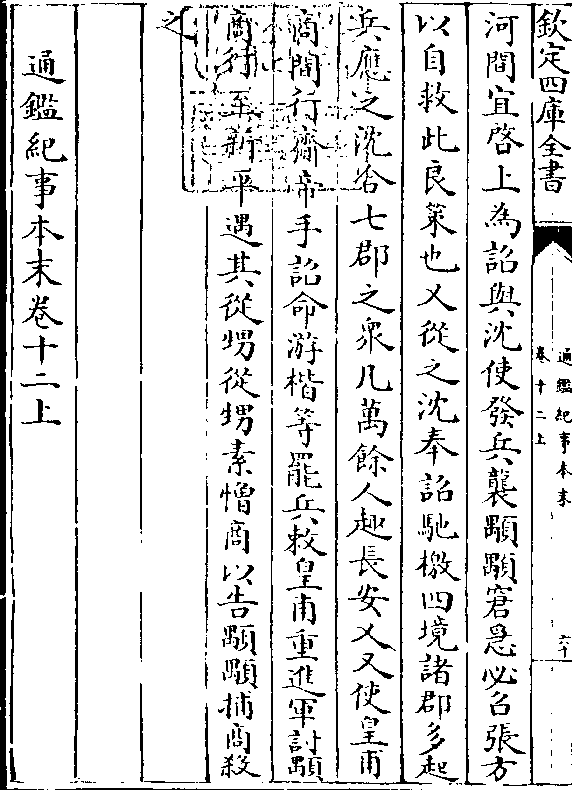 欽定四庫全書
通鑑紀事本末
卷十二上
六十
河間宜啓上為詔與沈使發兵襲顒顒窘急必召張方
以自救此良策也乂從之沈奉詔馳檄四境諸郡多起
兵應之沈合七郡之衆凡萬餘人趣長安乂又使皇甫
商間行齎帝手詔命游楷等罷兵敕皇甫重進軍討顒
商行至新平遇其從甥從甥素憎商以告顒顒捕商殺
之
通鑑紀事本末卷十二上